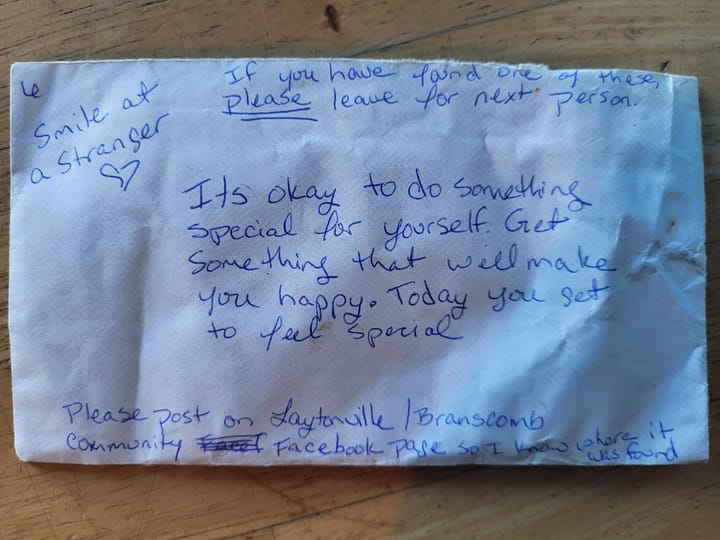 6
Smile at
a Stranger
If you have found one of these,
please leave for next person.
Its okay to do something
special for yourself. Get
Something that will make
you happy. Today you get
to feel special
Please post on Laytonville/Branscomb
Community Facebook page so I know where it
was found